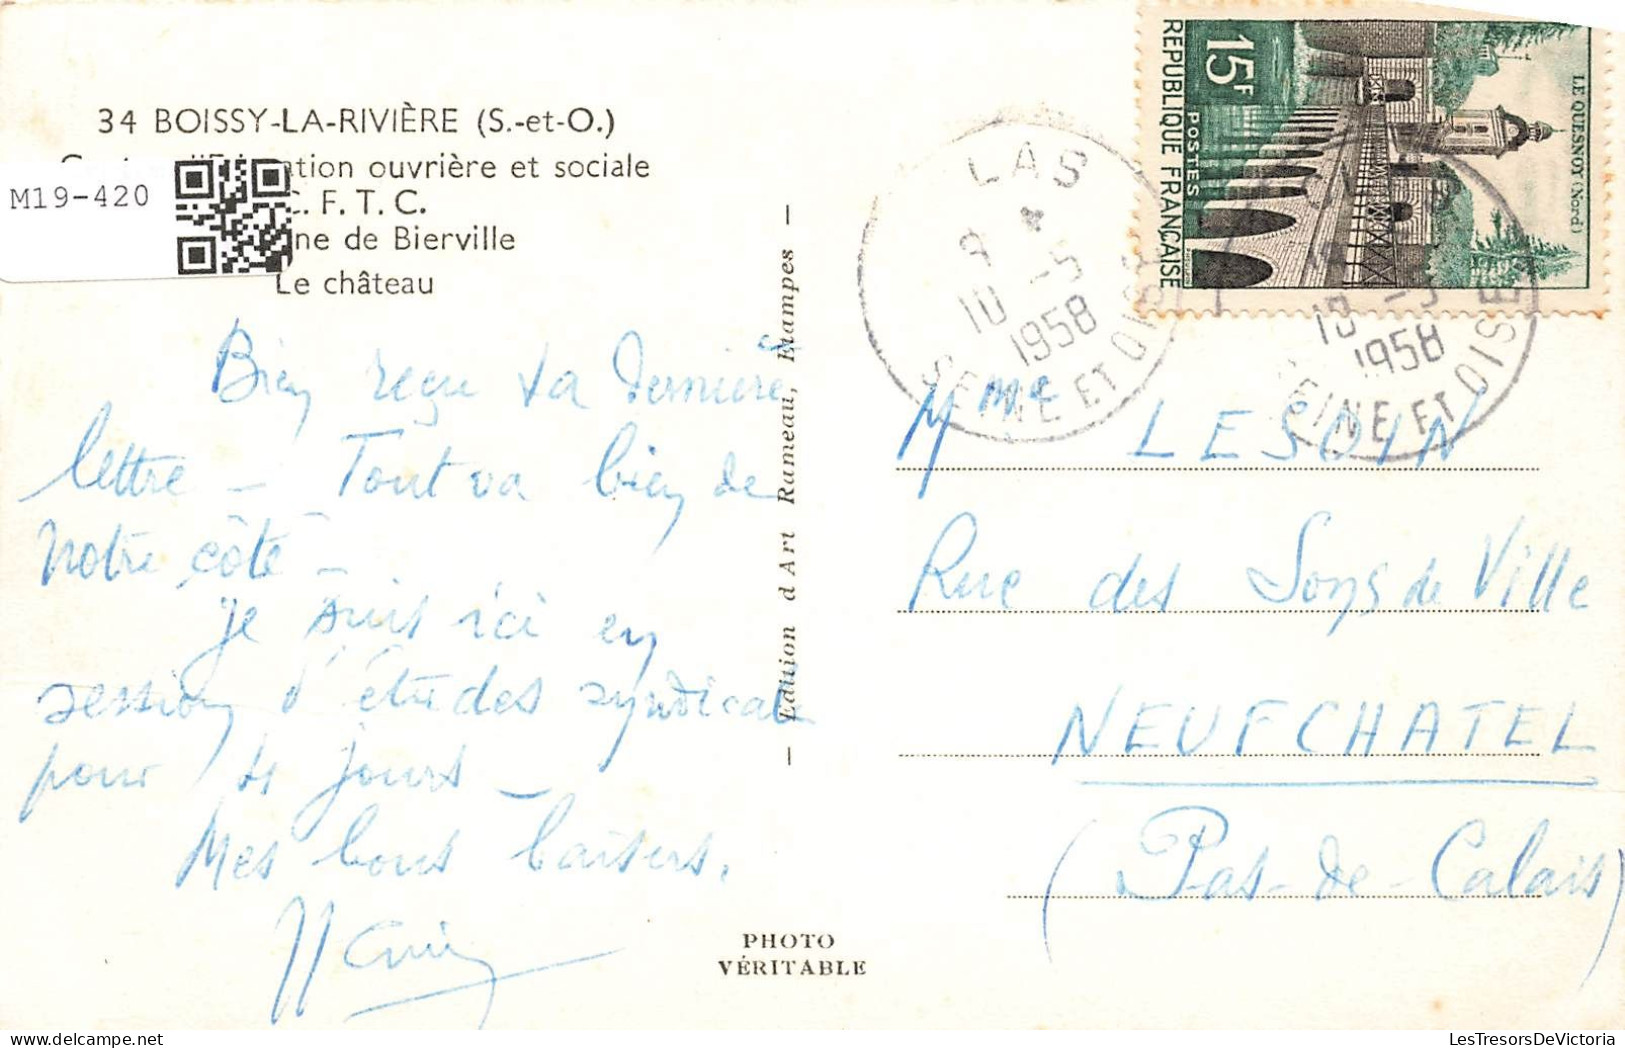 34 BOISSY-LA-RIVIÈRE (S.-et-O.)
ation ouvrière et sociale
C. F. T. C.
ne de Bierville
Le château
M19-420
Bien reçu ta dernière
lettre - Tout va bien de
notre côté -
Je suis ici en
session d'études syndicale
pour 4 jours -
Mes bons baisers.
Edition d'Art Rameau, Etampes
PHOTO
VÉRITABLE
15F
POSTES
REPUBLIQUE FRANÇAISE
LE QUESNOY (Nord)
LAS
10 -5
1958
SEINE ET OISE
10 -5
1958
SEINE ET OISE
Mme LESOIN
Rue des de Ville
NEUFCHATEL
(Pas-de-Calais)
LesTresorsDeVictoria